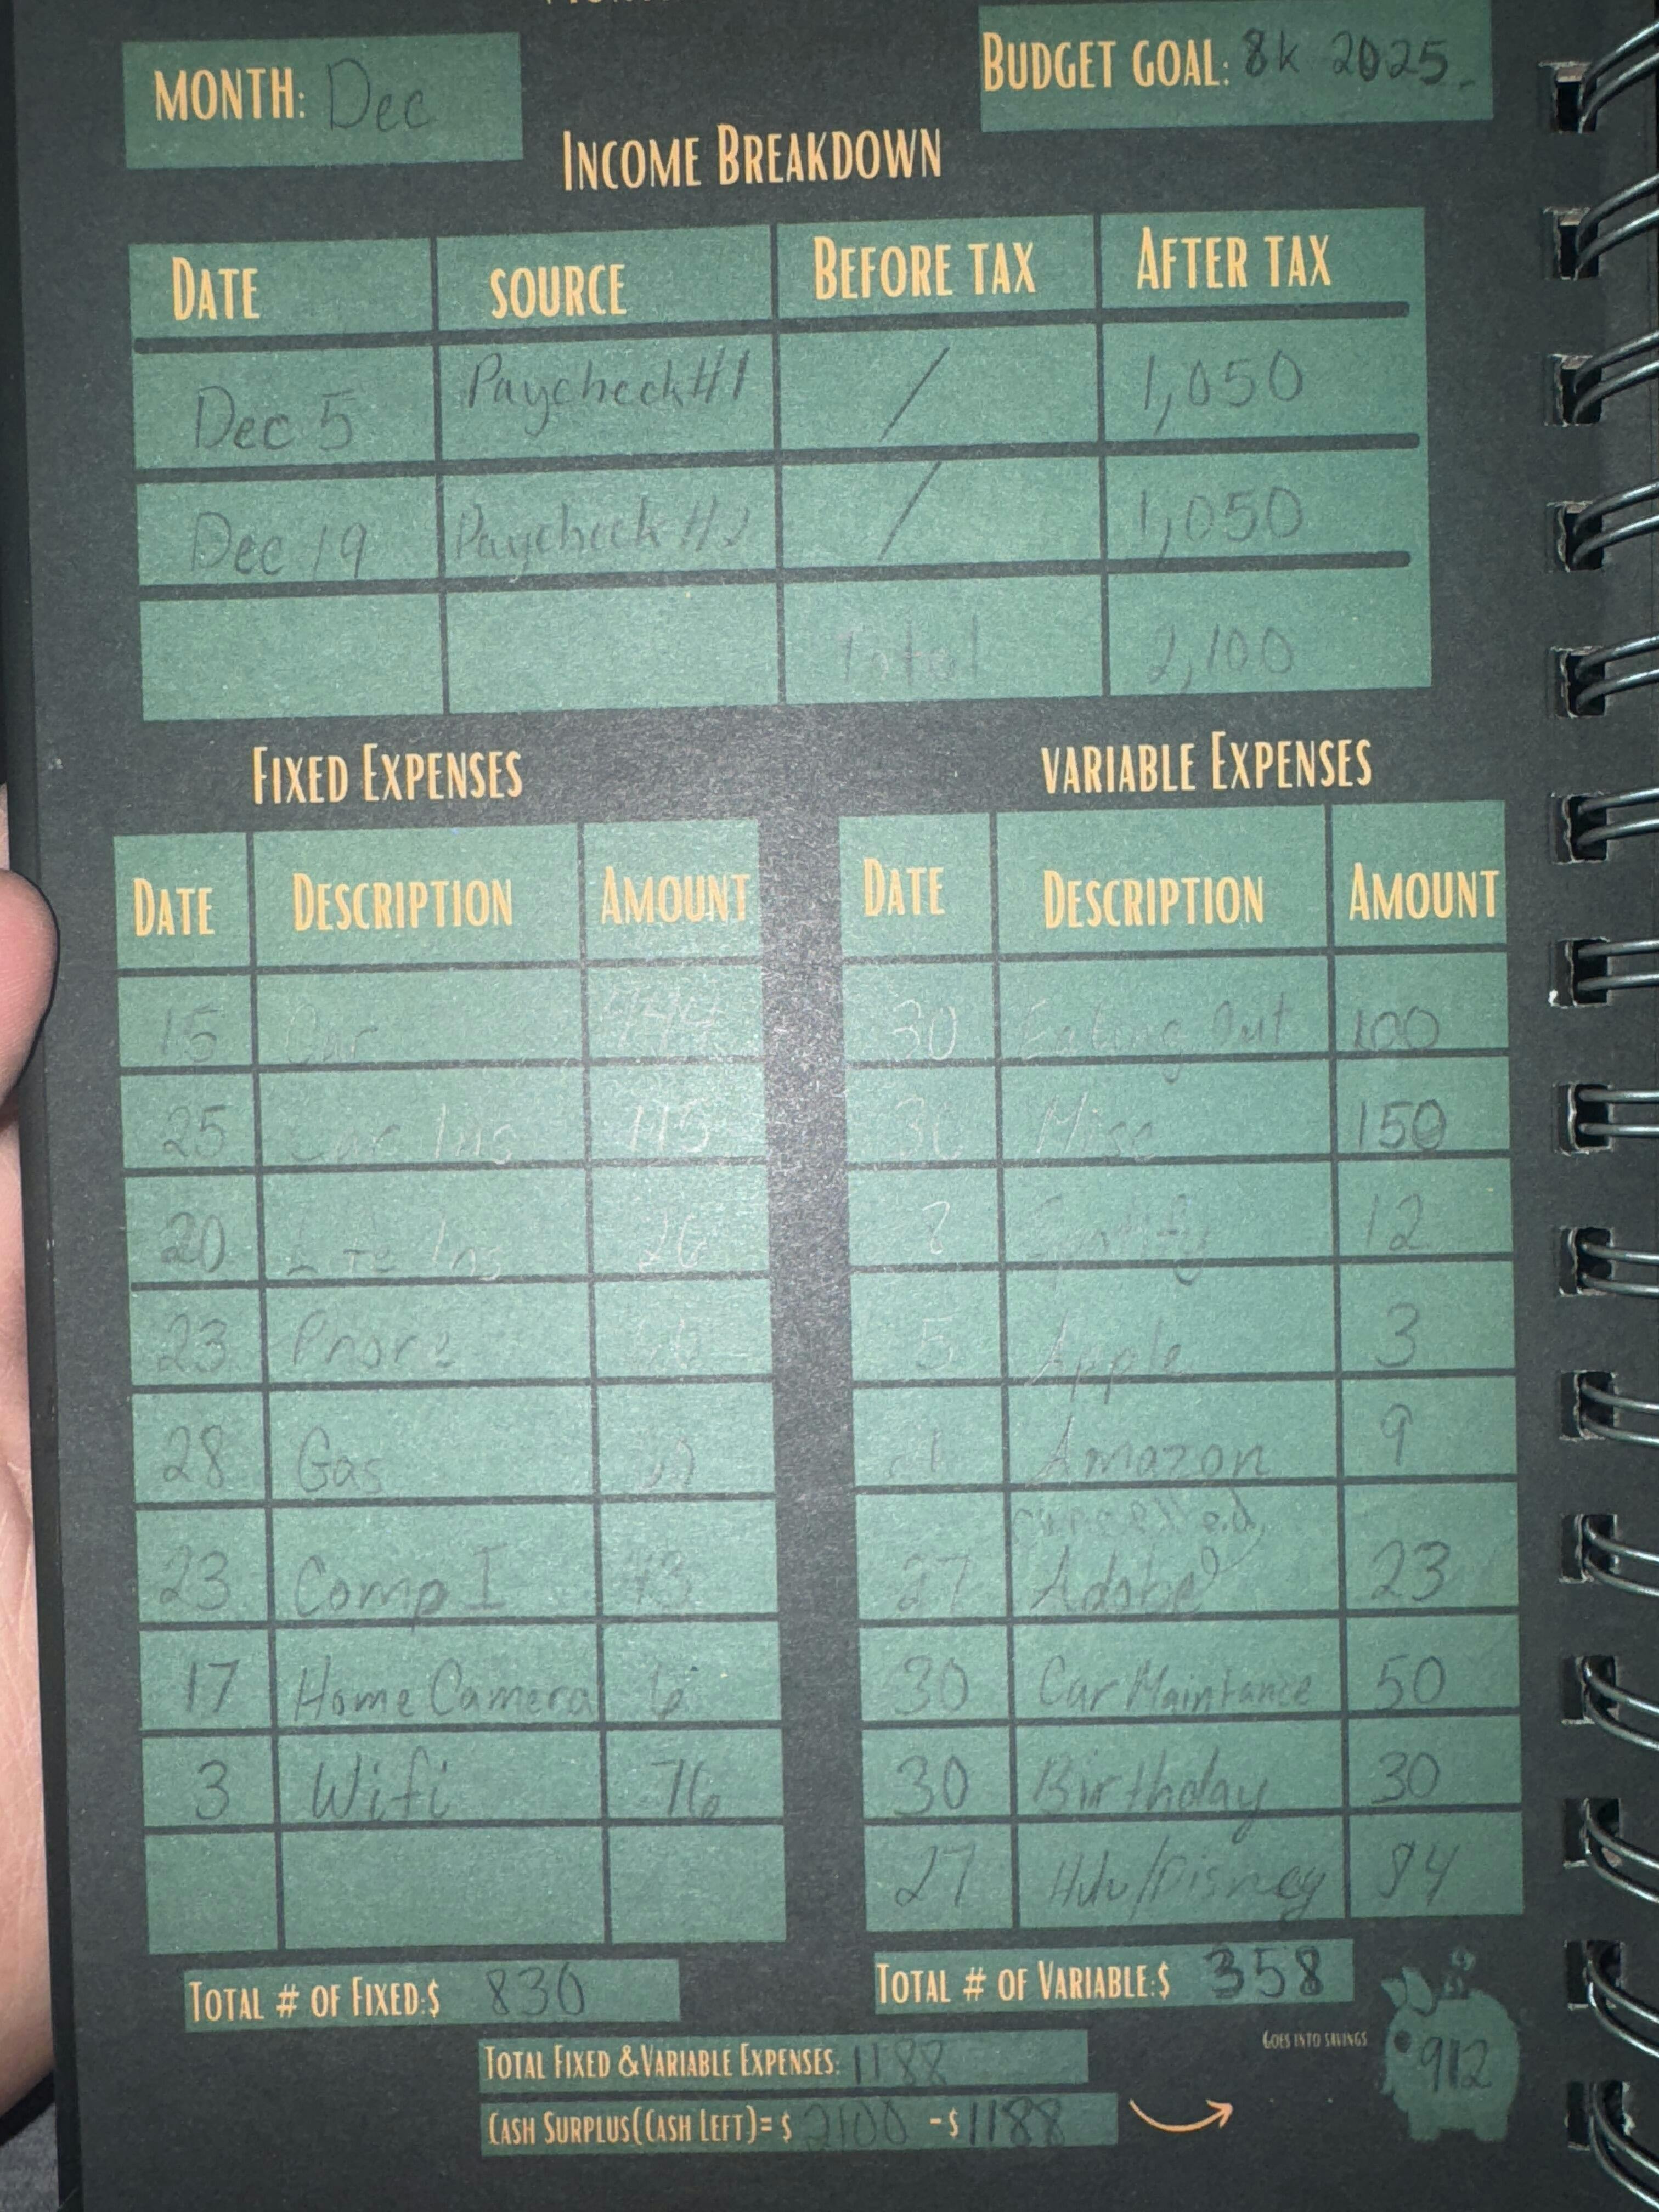 MONTH: Dec
BUDGET GOAL: 8k 2025.
INCOME BREAKDOWN
DATE SOURCE BEFORE TAX AFTER TAX
Dec 5 Paycheck #1 / 1,050
Dec 19 Paycheck #2 / 1,050
Total 2,100
FIXED EXPENSES
DATE DESCRIPTION AMOUNT
15 Car 444
25 Car Ins 115
20 Life Ins 26
23 Phone
28 Gas
23 Comp I 43
17 Home Camera 6
3 Wifi 76
TOTAL # OF FIXED:$ 830
VARIABLE EXPENSES
DATE DESCRIPTION AMOUNT
30 Eating Out 100
30 Misc 150
Spotify 12
5 Apple 3
Amazon 9
cancelled
27 Adobe 23
30 Car Maintance 50
30 Birthday 30
27 Hulu/Disney 84
TOTAL # OF VARIABLE:$ 358
TOTAL FIXED & VARIABLE EXPENSES: 1188
CASH SURPLUS(CASH LEFT)= $ 2100 -$ 1188
GOES INTO SAVINGS
912